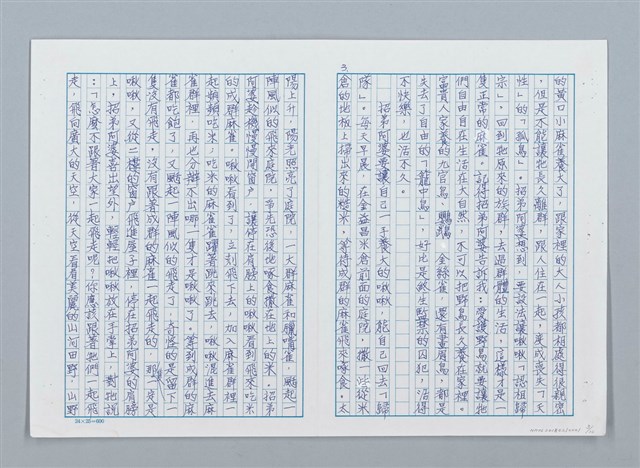 3.
的黃口小麻雀養大了，跟家裡的大人小孩都相處得很親密
，但是不能讓牠長久離群，跟人住在一起，變成喪失了「天
性」的「孤鳥」。招弟阿婆想到，要設法讓啾啾「認祖歸
宗」，回到牠原來的族群，去過群體的生活，這樣才是一
隻正常的麻雀。記得招弟阿婆告訴我：愛護野鳥就要讓牠
們自由自在生活在大自然，不可以把野鳥長久養在家裡。
富貴人家養的九官鳥、鸚鵡、金絲雀，還有畫眉鳥，都是
失去了自由的「籠中鳥」，好比是無生的囚犯，活得
不快樂，也活不久。
招弟阿婆要讓自己一手養大的啾啾，能自己回去「歸
隊」。每天早晨，在金益昌米倉前面的庭院，撒一些從米
倉的地板上掃出來的糙米，等待成群的麻雀飛來啄食。太
陽上升，陽光照亮了庭院，一大群麻雀和臘嘴雀，颳起一
陣風似的飛來庭院，爭先恐後地啄食撒在地上的米。招弟
阿婆趁機慢慢開窗戶，讓停在肩膀上的啾啾看到飛來吃米
的成群麻雀，啾啾看到了，立刻飛下去，加入麻雀群裡一
起啄吃米，吃米的麻雀雀躍著跳來跳去，啾啾混進去麻
雀群裡，再也分辦不出哪一隻才是啾啾了。等到成群的麻
雀都吃飽了，又颳起一陣風似的飛走了，奇怪的是留下一
隻沒有飛走，沒有跟著成群的麻雀一起飛走的，那一定是
啾啾，又從一樣的窗戶飛進屋子裡，停在招弟阿婆的肩膀
上，招弟阿婆喜出望外，輕輕把啾啾放在手掌上，對牠說
：「怎麼不跟着大家一起飛走呢？你應該跟著牠們一起飛
走，飛向廣大的天空，從天空看看美麗的山河田野，山野
24×25=600